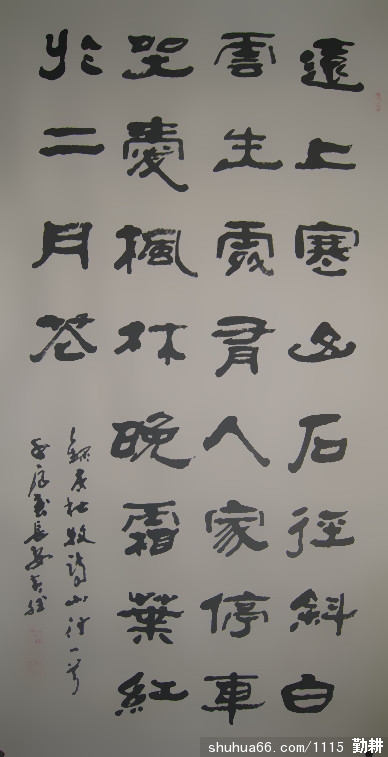 遠上寒山石徑斜白
雲生處有人家停車
坐愛楓林晚霜葉紅
於二月花
錄唐杜牧詩山行一首
shuhua66.com/1115 勤耕